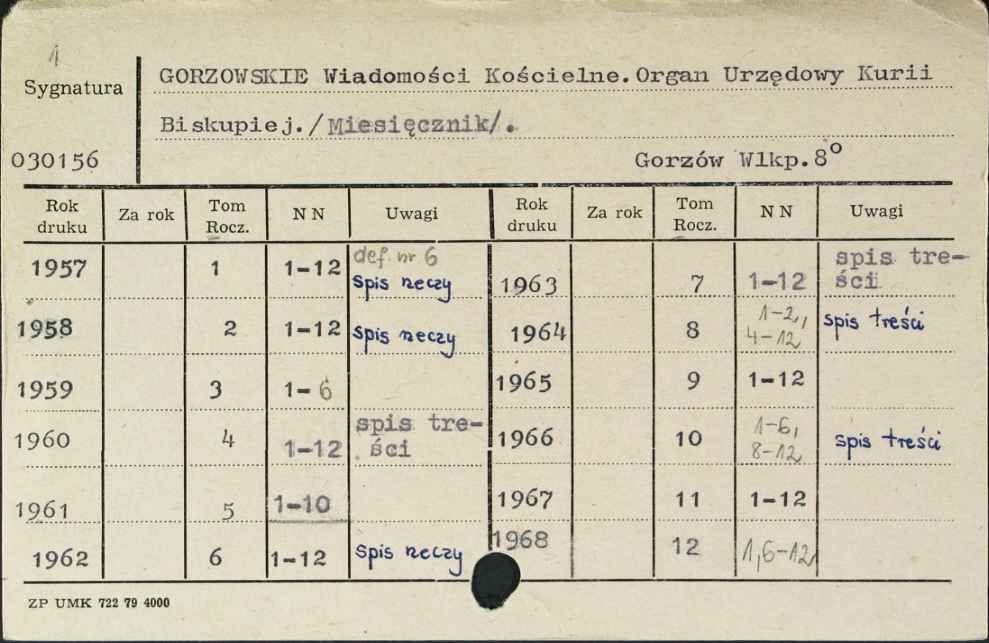 1
Sygnatura
GORZOWSKIE Wiadomości Kościelne. Organ Urzędowy Kurii
Biskupiej. /Miesięcznik/.
030156
Gorzów Wlkp. 8°
Rok druku Za rok Tom Rocz. N N Uwagi Rok druku Za rok Tom Rocz. N N Uwagi
1957 1 1-12 def. nr 6 spis rzeczy 1963 7 1-12 spis tre-ści
1958 2 1-12 spis rzeczy 1964 8 1-2, 4-12 spis treści
1959 3 1-6 1965 9 1-12
1960 4 1-12 spis tre-ści 1966 10 1-6, 8-12 spis treści
1961 5 1-10 1967 11 1-12
1962 6 1-12 spis rzeczy 1968 12 1,6-12
ZP UMK 722 79 4000